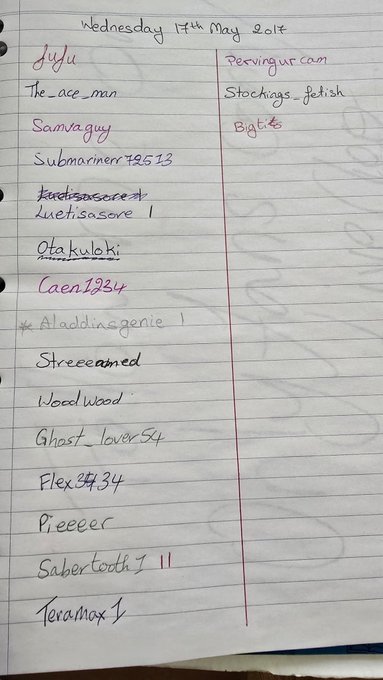 Wednesday 17th May 2017
JuJu
The_ace_man
Samvaguy
Submarinerr72513
Luetisasore 1
Otakuloki
Caen1234
* Aladdinsgenie 1
Streeeamed
Woodwood
Ghost_lover54
Flex3434
Pieeeer
Sabertooth1 11
Teramax1
Pervingurcam
Stockings_fetish
Bigtits